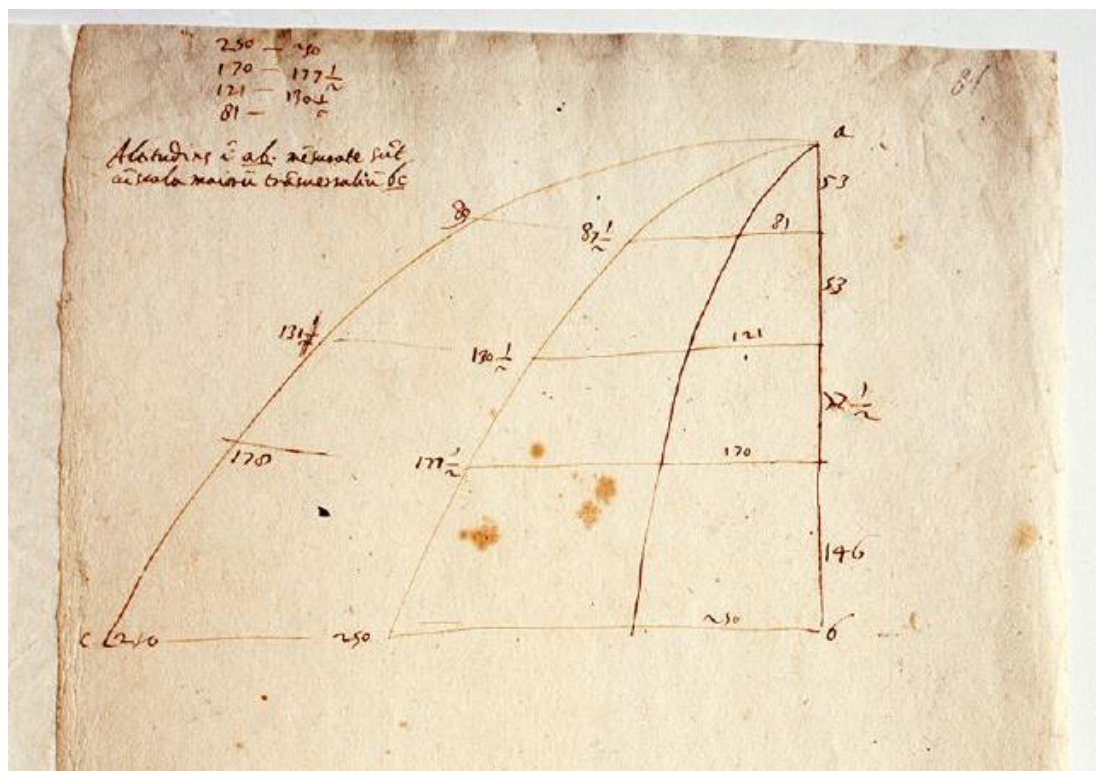 250 — 250
170 — 177½
121 — 130½
81 —
81
Altitudines ī ab. mēsurate sūt
cū scala maiorū trāsuersaliū bc
a
53
81
87½
53
131½
130½
121
170
177½
178
146
c 250
250
250
b